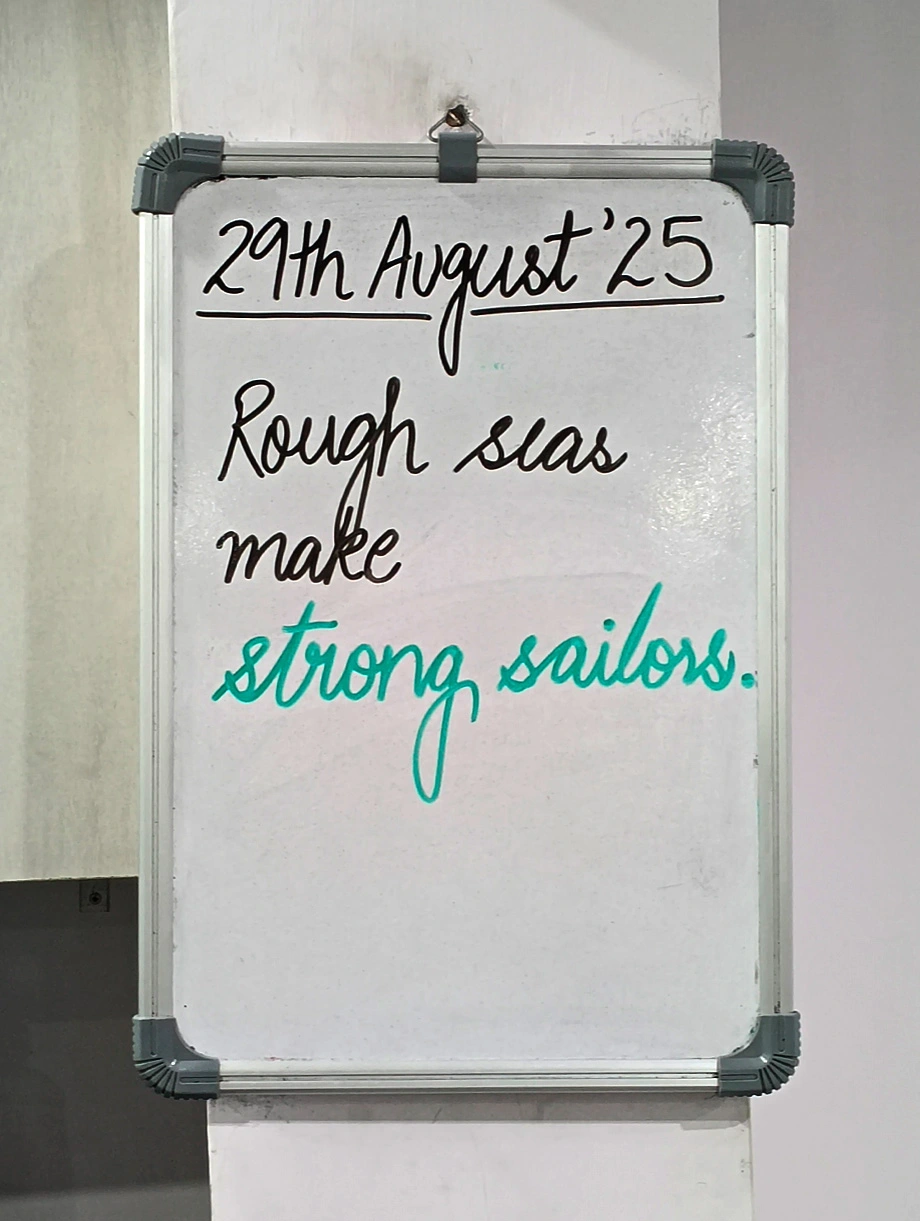 29th August '25
Rough seas
make
strong sailors.